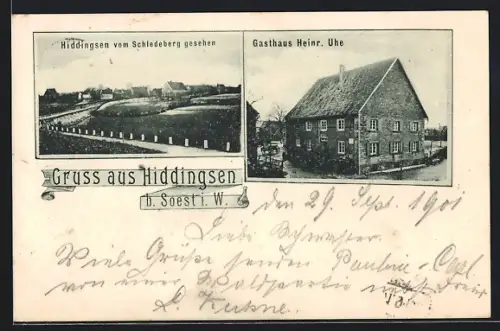 Hiddingsen vom Schledeberg gesehen
Gasthaus Heinr. Uhe
Gruss aus Hiddingsen
b. Soest i. W.
den 29 Sept. 1901
Liebe Schwester.
Viele Grüße senden Pauline
von einer Waldpartie